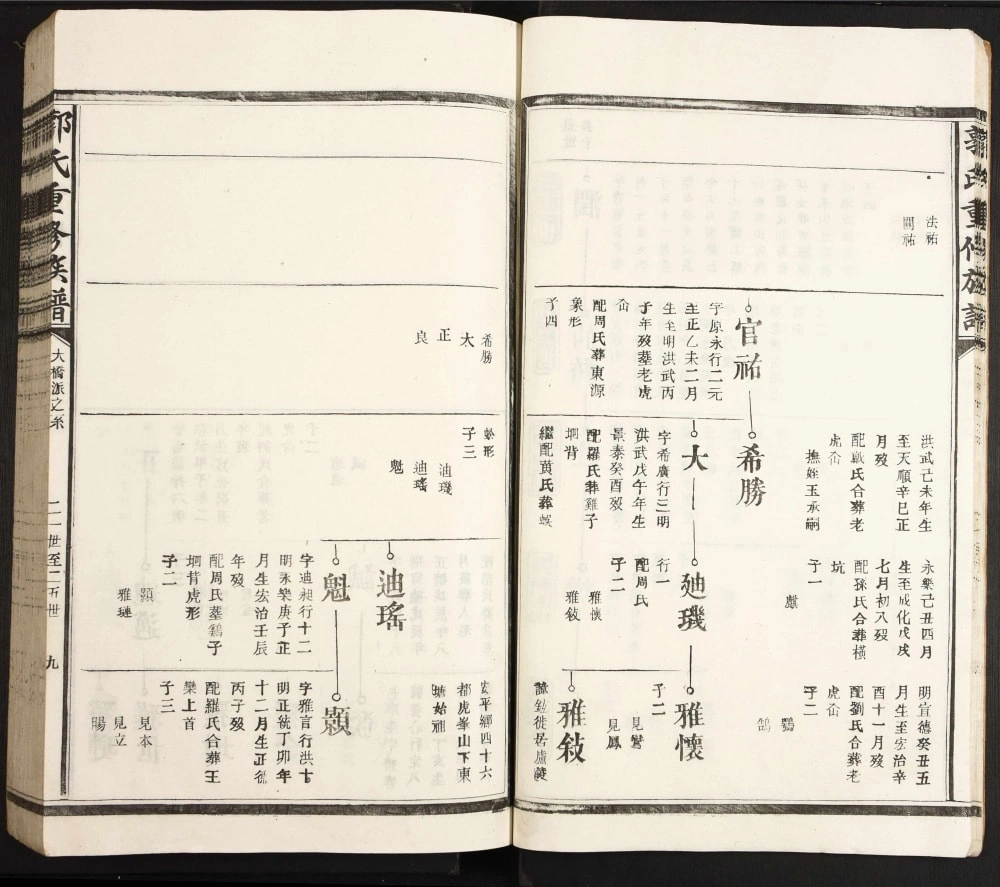 郭氏重修族譜
法祐
關祐
洪武己未年生
至天順辛巳正
月殁
配歐氏合葬老
虎峦
撫姪玉承嗣
永樂己丑四月
生至成化戊戌
七月初八殁
配孫氏合葬橫
坑
子一
獻
明宣德癸丑五
月生至宏治辛
酉十一月殁
配劉氏合葬老
虎峦
子二
鸚
鵠
官祐
字原永行二元
至正乙未二月
生至明洪武丙
子年殁葬老虎
峦
配周氏葬東源
象形
子四
希勝
大
字希廣行三明
洪武戊午年生
景泰癸酉殁
配羅氏葬雞子
垇背
繼配黄氏葬蜈
廸璣
行一
配周氏
子二
雅懷
雅敍
雅懷
子二
見鸞
見鳳
雅敍
希勝
太
正
良
蚣形
子三
迪璣
迪瑤
魁
迪瑤
魁
字迪昶行十二
明永樂庚子正
月生宏治壬辰
年殁
配周氏葬鷄子
垇背虎形
子二
顥
雅璉
安平鄉四十六
都虎峯山下東
塘始祖
顥
字雅言行洪十
明正統丁卯年
十二月生正德
丙子殁
配羅氏合葬王
欒上首
子三
見本
見立
陽
郭氏重修族譜
大橋派之系
二一世至二五世
九